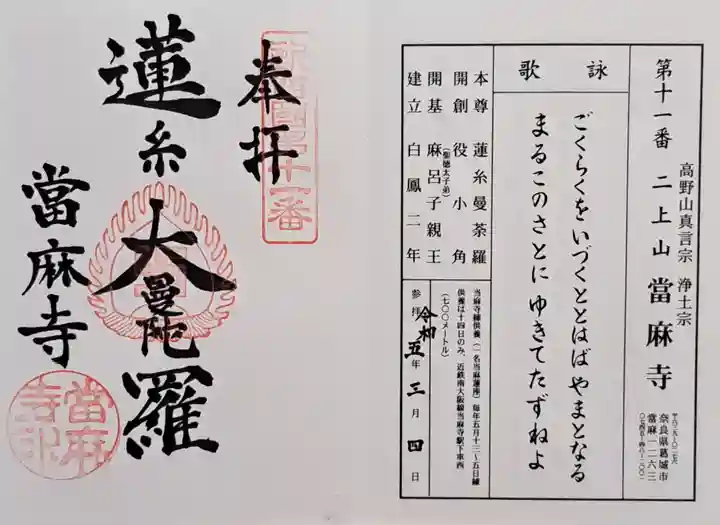 第十一番 二上山 當麻寺
高野山真言宗 浄土宗
奈良県葛城市
當麻一二六三
詠歌
ごくらくをいづくととはばやまとなる
まるこのさとにゆきてたずねよ
本尊 蓮糸曼荼羅
開創 役小角
開基 麻呂子親王
(聖徳太子弟)
建立 白鳳二年
当麻寺練供養(一名当麻蓮座)毎年五月十三〜五日練
供養は十四日のみ、近鉄南大阪線当麻寺駅下車西
(七〇〇メートル)
参拝 令和五年三月四日
奉拝
蓮糸大曼陀羅
當麻寺
當麻寺印